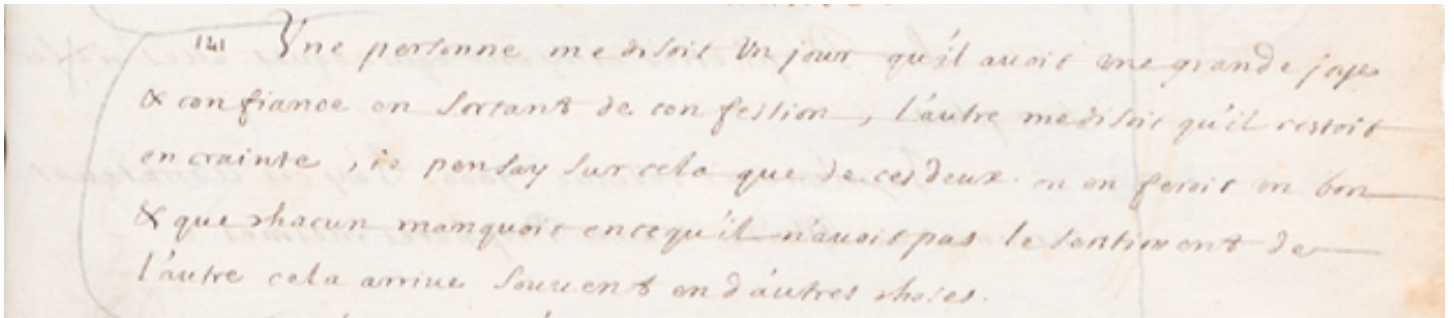 141 Vne personne me disoit Vn jour qu'il auoit vne grande joye
& confiance en sortant de confession, l'autre me disoit qu'il restoit
en crainte, ie pensay sur cela que de ces deux on en feroit vn bon
& que chacun manquoit en ce qu'il n'auoit pas le sentiment de
l'autre cela arriue souuent en d'autres choses.